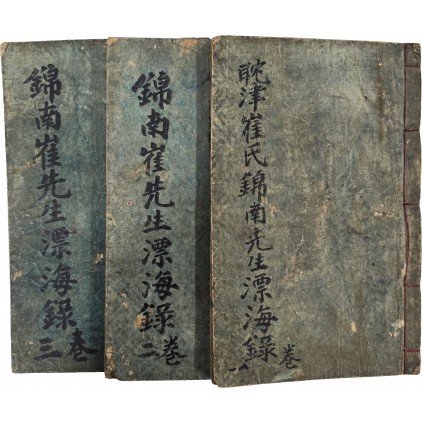 耽津崔氏錦南先生漂海錄卷一
錦南崔先生漂海錄卷二
錦南崔先生漂海錄卷三